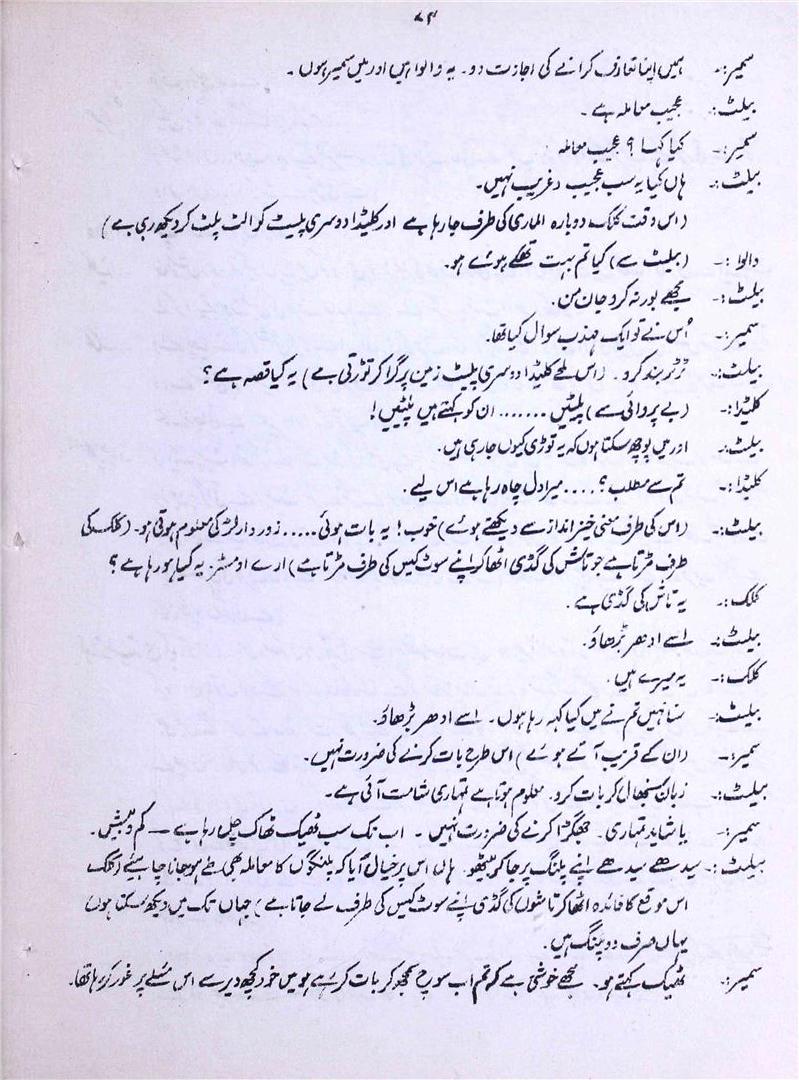 ۷۴
سمیر:- ہمیں اپنا تعارف کرانے کی اجازت دو۔ یہ والوا ہیں اور میں سمیر ہوں۔
بیلٹ:- عجیب معاملہ ہے۔
سمیر:- کیا کہا؟ عجیب معاملہ
بیلٹ:- ہاں کیا یہ سب عجیب و غریب نہیں۔
(اس وقت کلک دوبارہ الماری کی طرف جا رہا ہے اور کلیڈا دوسری پلیٹ کو الٹ پلٹ کر دیکھ رہی ہے)
والوا:- (بیلٹ سے) کیا تم بہت تھکے ہوئے ہو۔
بیلٹ:- مجھے بور نہ کرو جان من۔
سمیر:- اُس نے تو ایک مہذب سوال کیا تھا۔
بیلٹ:- ٹرٹر بند کرو۔ (اس لمحے کلیڈا دوسری پلیٹ زمین پر گرا کر توڑتی ہے) یہ کیا قصہ ہے؟
کلیڈا:- (بے پروائی سے) پلیٹیں ....... ان کو کہتے ہیں پلیٹیں!
بیلٹ:- اور میں پوچھ سکتا ہوں کہ یہ توڑی کیوں جا رہی ہیں۔
کلیڈا:- تم سے مطلب؟.... میرا دل چاہ رہا ہے اس لیے۔
بیلٹ:- (اس کی طرف معنی خیز انداز سے دیکھتے ہوئے) خوب! یہ بات ہوئی..... زور دار لڑکی معلوم ہوتی ہو۔ (کلک کی
طرف مڑتا ہے جو تاش کی گڈی اٹھا کر اپنے سوٹ کیس کی طرف مڑتا ہے) ارے او مسٹر۔ یہ کیا ہو رہا ہے؟
کلک:- یہ تاش کی گڈی ہے۔
بیلٹ:- اسے ادھر بڑھاؤ۔
کلک:- یہ میرے ہیں۔
بیلٹ:- سنا نہیں تم نے میں کیا کہہ رہا ہوں۔ اسے ادھر بڑھاؤ۔
سمیر:- (ان کے قریب آتے ہوئے) اس طرح بات کرنے کی ضرورت نہیں۔
بیلٹ:- زبان سنبھال کر بات کرو۔ معلوم ہوتا ہے تمہاری شامت آئی ہے۔
سمیر:- یا شاید تمہاری۔ جھگڑا کرنے کی ضرورت نہیں۔ اب تک سب ٹھیک ٹھاک چل رہا ہے — کم و بیش۔
بیلٹ:- سیدھے سیدھے اپنے پلنگ پر جا کر بیٹھو۔ ہاں اس پر خیال آیا کہ پلنگوں کا معاملہ بھی طے ہو جانا چاہیئے (کلک
اس موقع کا فائدہ اٹھا کر تاشوں کی گڈی اپنے سوٹ کیس کی طرف لے جاتا ہے) جہاں تک میں دیکھ سکتا ہوں
یہاں صرف دو پلنگ ہیں۔
سمیر:- ٹھیک کہتے ہو۔ مجھے خوشی ہے کہ تم اب سوچ سمجھ کر بات کر رہے ہو میں خود کچھ دیر سے اس مسئلے پر غور کر رہا تھا۔